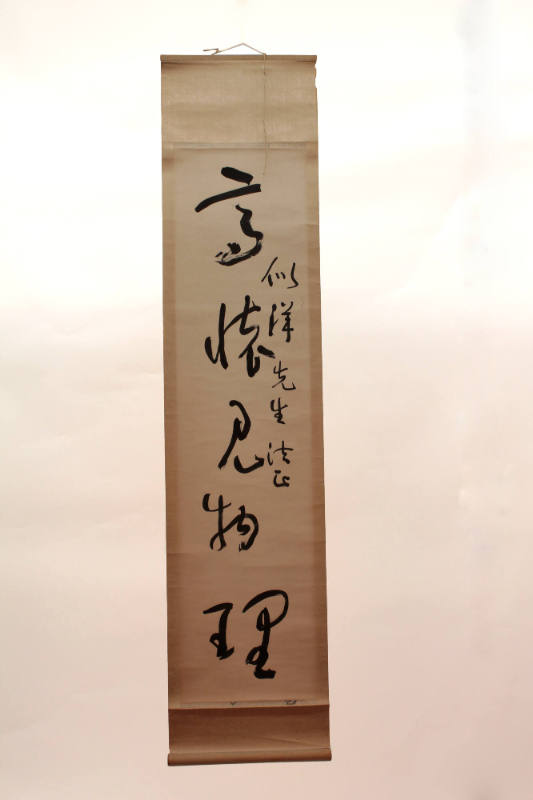 似洋先生法正
高懷見物理